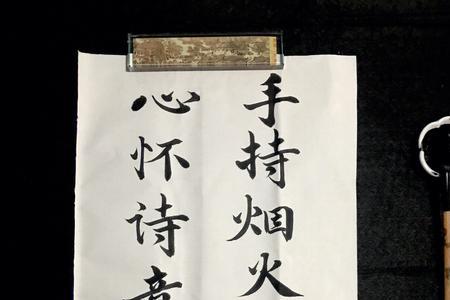 手持烟火
心怀诗